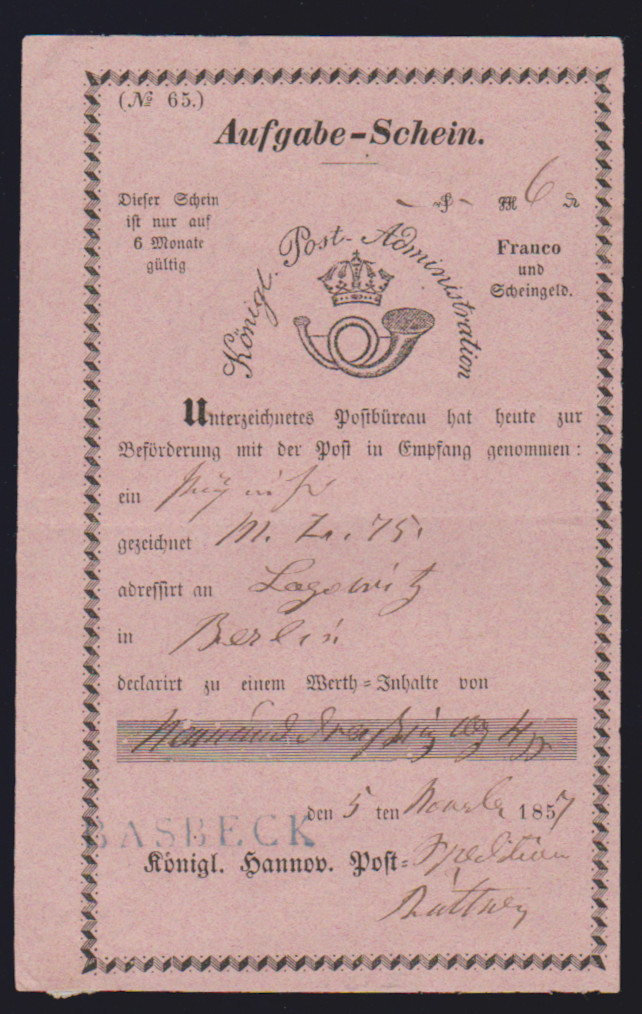 (№ 65.)
Aufgabe-Schein.
Dieser Schein
ist nur auf
6 Monate
gültig
6
Franco
und
Scheingeld.
Königl. Post-Administration
Unterzeichnetes Postbüreau hat heute zur
Beförderung mit der Post in Empfang genommen:
ein
gezeichnet M. Z. . 75.
adressirt an Lagowitz
in Berlin
declarirt zu einem Werth-Inhalte von
Neun und dreißig
den 5 ten 1857
BASBECK
Königl. Hannov. Post-Spedition